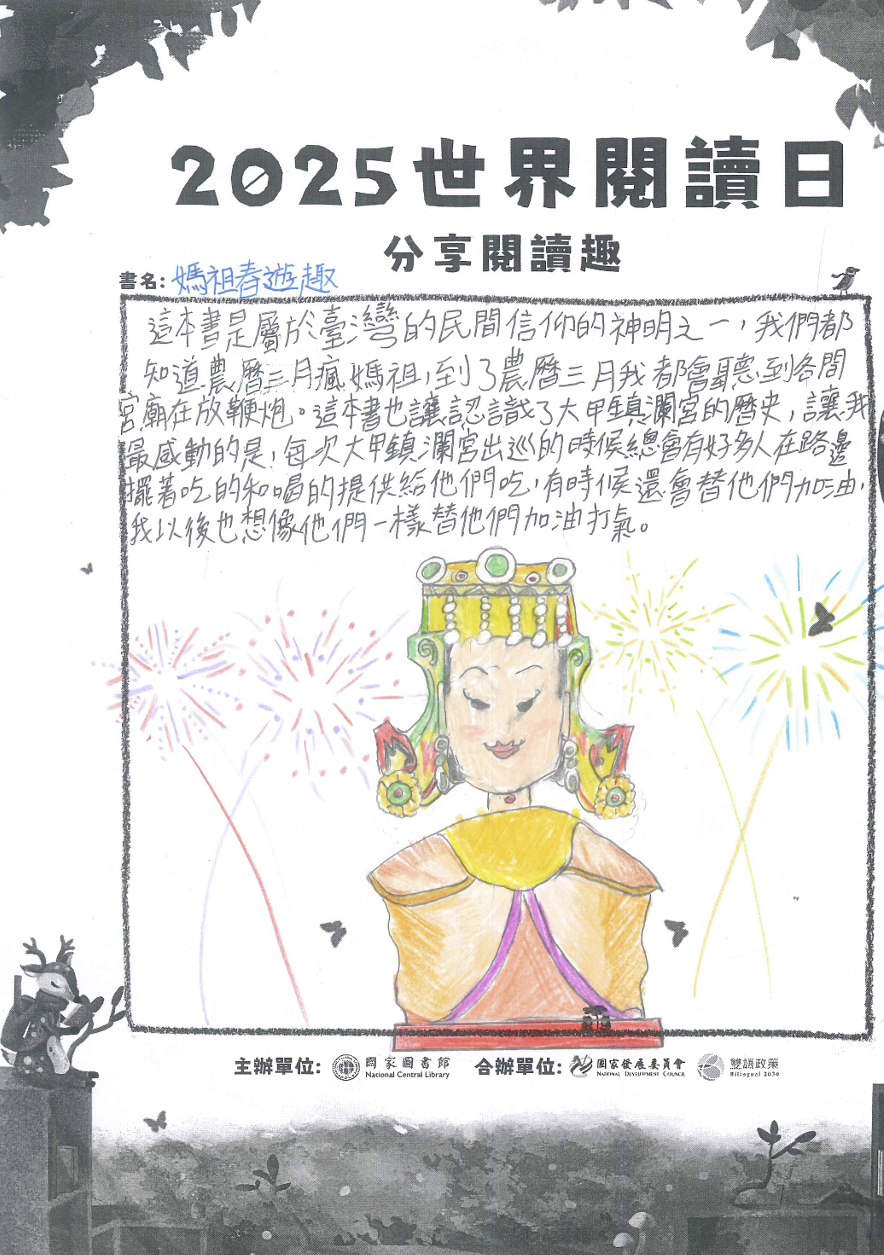 2025世界閱讀日
分享閱讀趣
書名：媽祖春遊趣
這本書是屬於臺灣的民間信仰的神明之一，我們都
知道農曆三月瘋媽祖，到了農曆三月我都會聽到各間
宮廟在放鞭炮。這本書也讓認識了大甲鎮瀾宮的曆史，讓我
最感動的是，每次大甲鎮瀾宮出巡的時候總會有好多人在路邊
擺著吃的和喝的提供給他們吃，有時候還會替他們加油，
我以後也想像他們一樣替他們加油打氣。
主辦單位： 國家圖書館 National Central Library 合辦單位： 國家發展委員會 National Development Council 雙語政策 Bilingual 2030